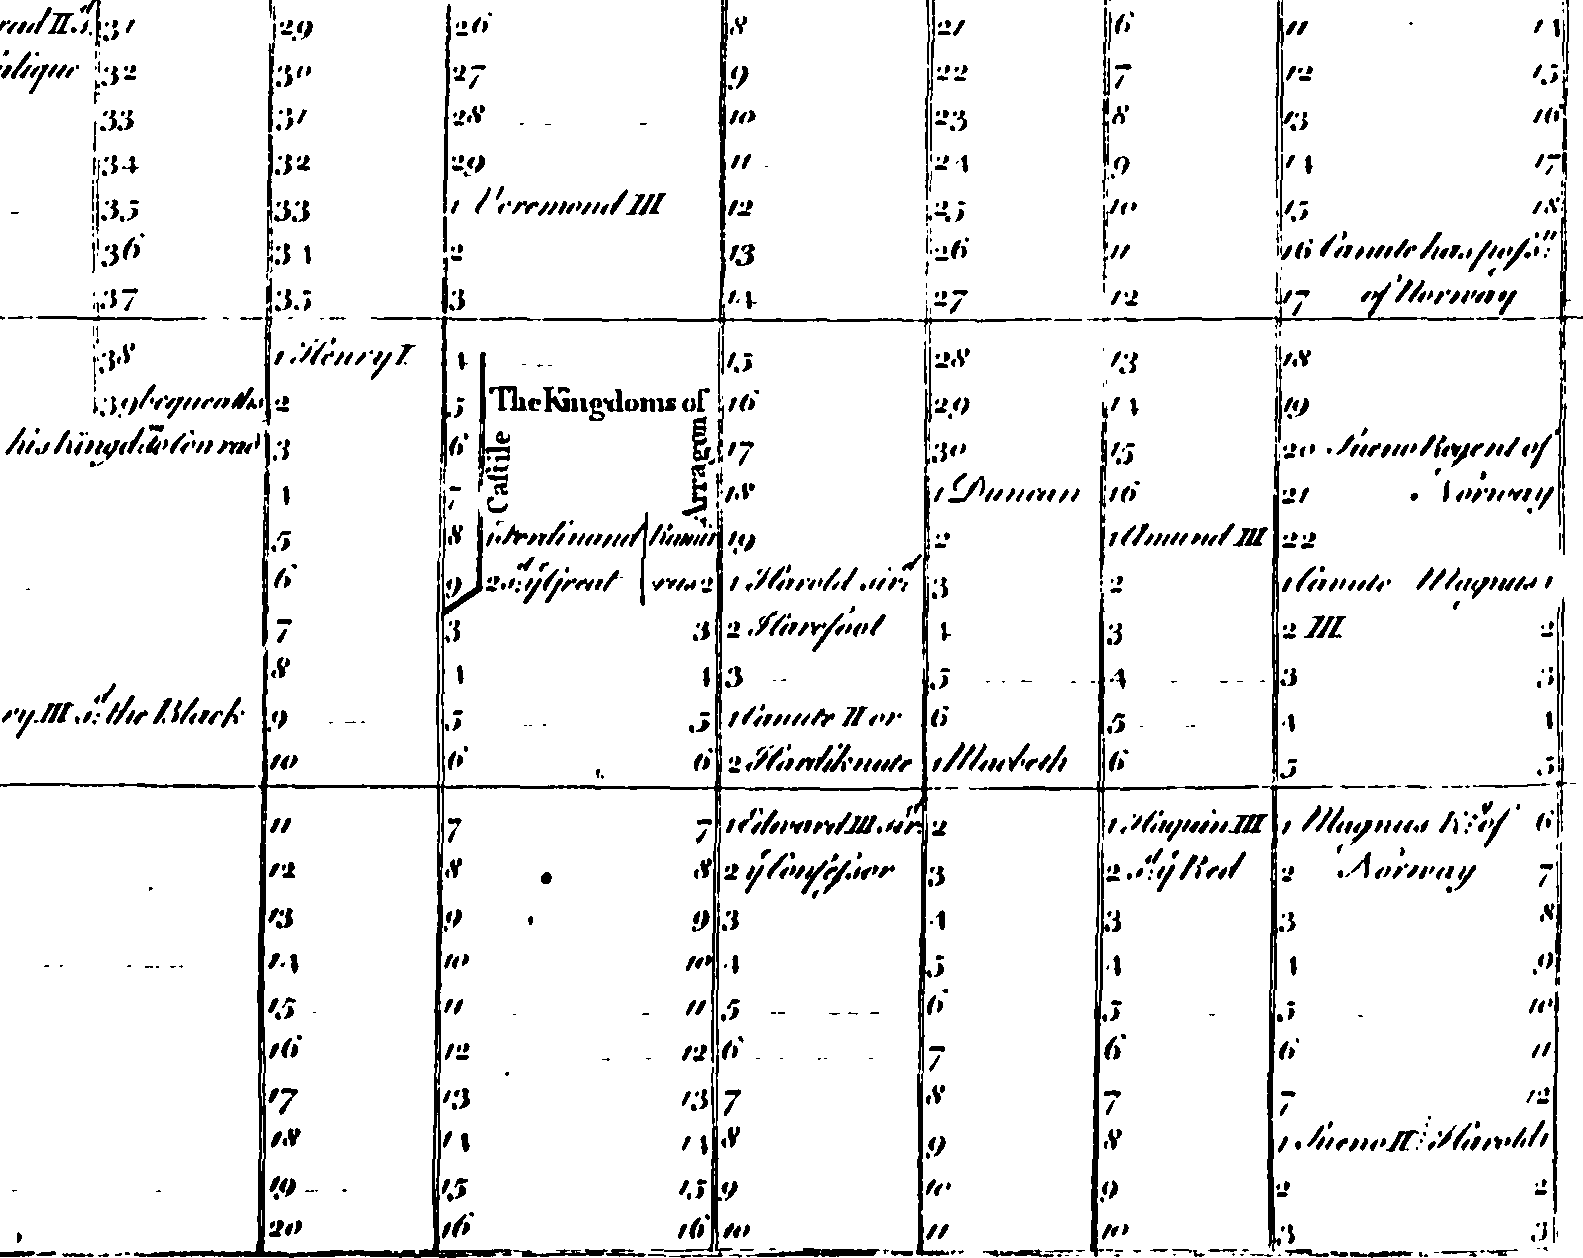 31 29 26 8 21 6 11 14
32 30 27 9 22 7 12 15
33 31 28 10 23 8 13 16
34 32 29 11 24 9 14 17
35 33 1 Veremond III 12 25 10 15 18
36 34 2 13 26 11 16 Canute has poſs.n
37 35 3 14 27 12 17 of Norway
38 1 Henry I. 4 15 28 13 18
39 bequeaths 2 5 The Kingdoms of 16 29 14 19
his kingd.m to Conrad 3 6 Caſtile Arragon 17 30 15 20 Sueno Regent of
4 7 18 1 Duncan 16 21 Norway
5 8 1 Ferdinand Ramir 19 2 1 Amund III 22
6 9 2 S.d ÿ Great rus 2 1 Harold sir.d 3 2 1 Canute Magnus 1
7 3 3 2 Harefoot 4 3 2 III 2
8 4 4 3 5 4 3 3
ry III S.d the Black 9 5 5 1 Canute II or 6 5 4 4
10 6 6 2 Hardiknute 1 Macbeth 6 5 5
11 7 7 1 Edward III sir.d 2 1 Haquin III 1 Magnus K.g of 6
12 8 8 2 ÿ Confeſsor 3 2 S.d ÿ Red 2 Norway 7
13 9 9 3 4 3 3 8
14 10 10 4 5 4 4 9
15 11 11 5 6 5 5 10
16 12 12 6 7 6 6 11
17 13 13 7 8 7 7 12
18 14 14 8 9 8 1 Sueno II Harold 1
19 15 15 9 10 9 2 2
20 16 16 10 11 10 3 3